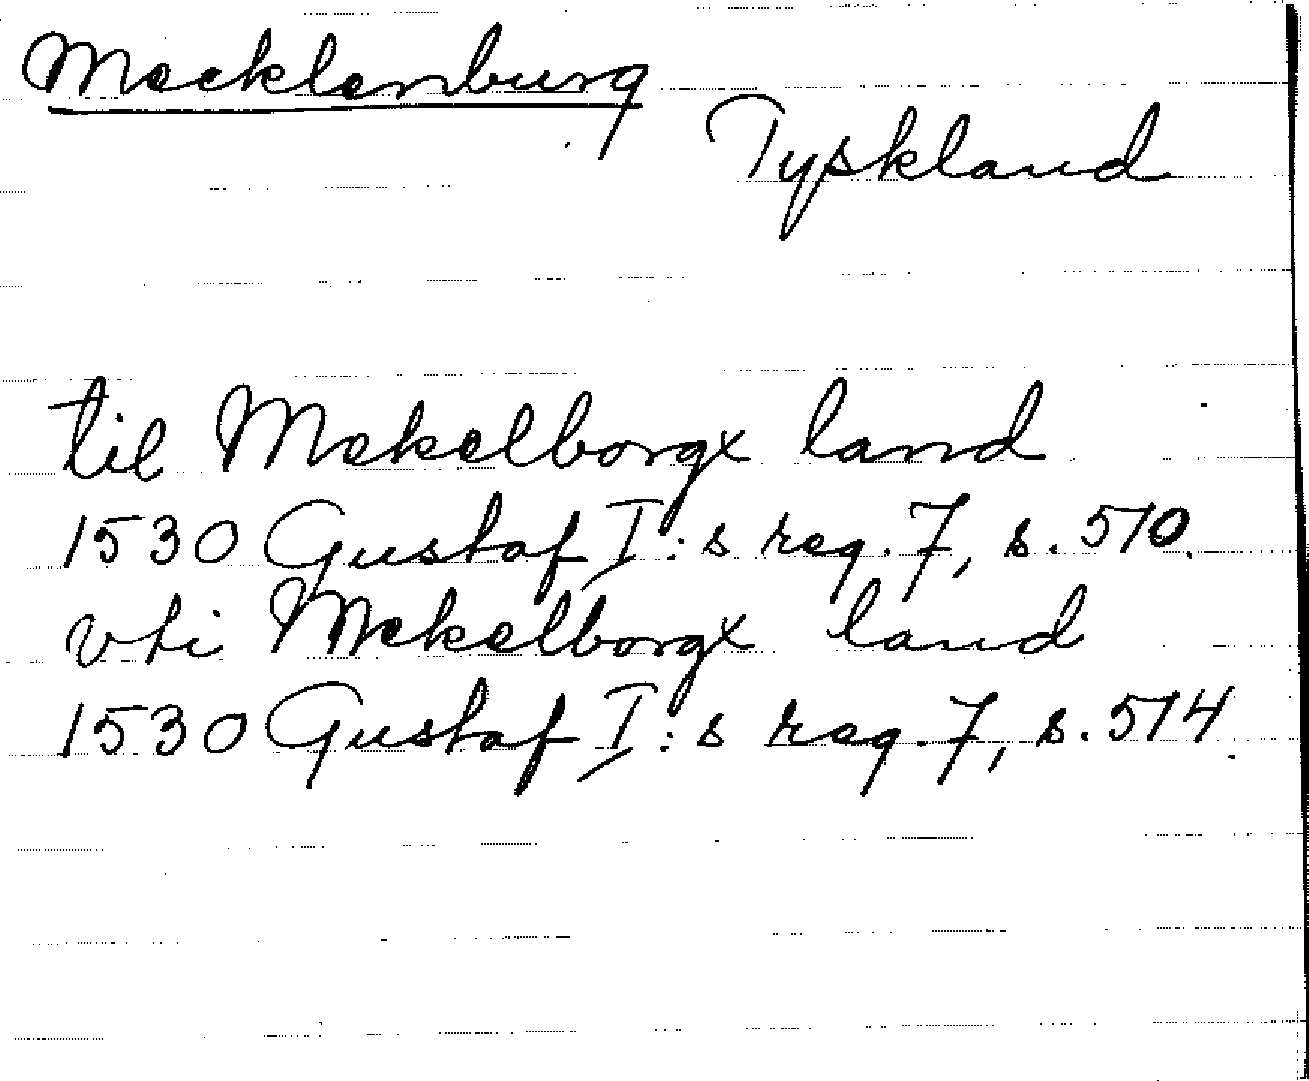 Mecklenburg
Tyskland
til Mekelborgx land
1530 Gustaf I:s reg. 7, s. 510.
vti Mekelborgx land
1530 Gustaf I:s reg. 7, s. 514.